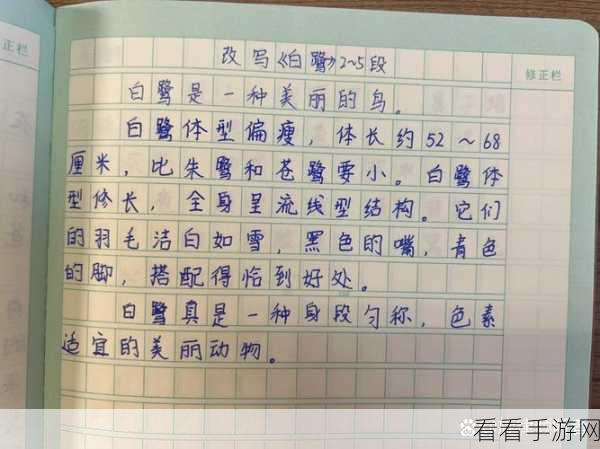 正栏
改写《白鹭》2~5段
修正栏
白鹭是一种美丽的鸟。
白鹭体型偏瘦，体长约52～68
厘米，比朱鹭和苍鹭要小。白鹭体
型修长，全身呈流线型结构。它们
的羽毛洁白如雪，黑色的嘴，青色
的脚，搭配得恰到好处。
白鹭真是一种身段匀称，色素
适宜的美丽动物。
看看手游网